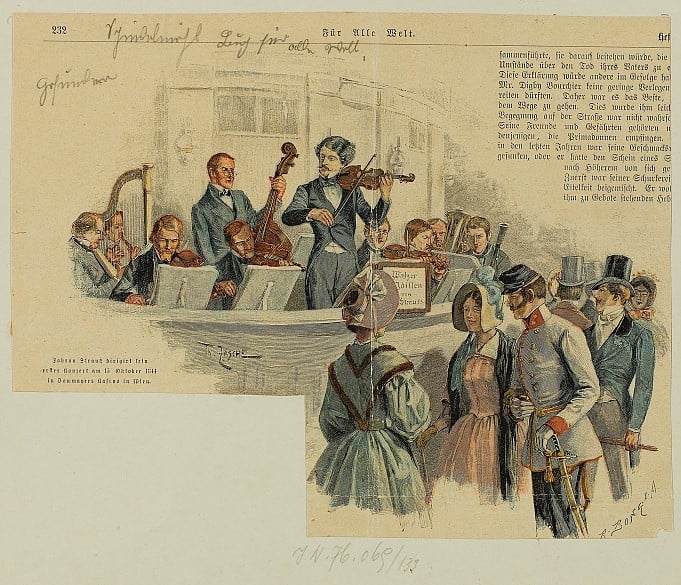 232 Für Alle Welt. Hef
Buch für alle Welt
sammenführte, sie darauf bestehen würde, die
Umstände über den Tod ihres Vaters zu e
Diese Erklärung würde andere im Gefolge ha
Mr. Digby Bourchier keine geringe Verlegen
reiten dürften. Daher war es das Beste,
dem Wege zu gehen. Dies wurde ihm leich
Begegnung auf der Straße war nicht wahrsch
Seine Freunde und Gefährten gehörten n
denjenigen, die Primadonnen empfingen.
in den letzten Jahren war seine Geschmacks
gesunken, oder er hatte den Schein eines S
nach Höherem von sich ge
Zuerst war seiner Schurkerei
Eitelkeit beigemischt. Er wol
ihm zu Gebote stehenden Heb
Walzer
Idillen
von
Strauß
Johann Strauß dirigirt sein
erstes Konzert am 15. Oktober 1844
in Dommayers Kasino in Wien.
J.N. 76.069/133